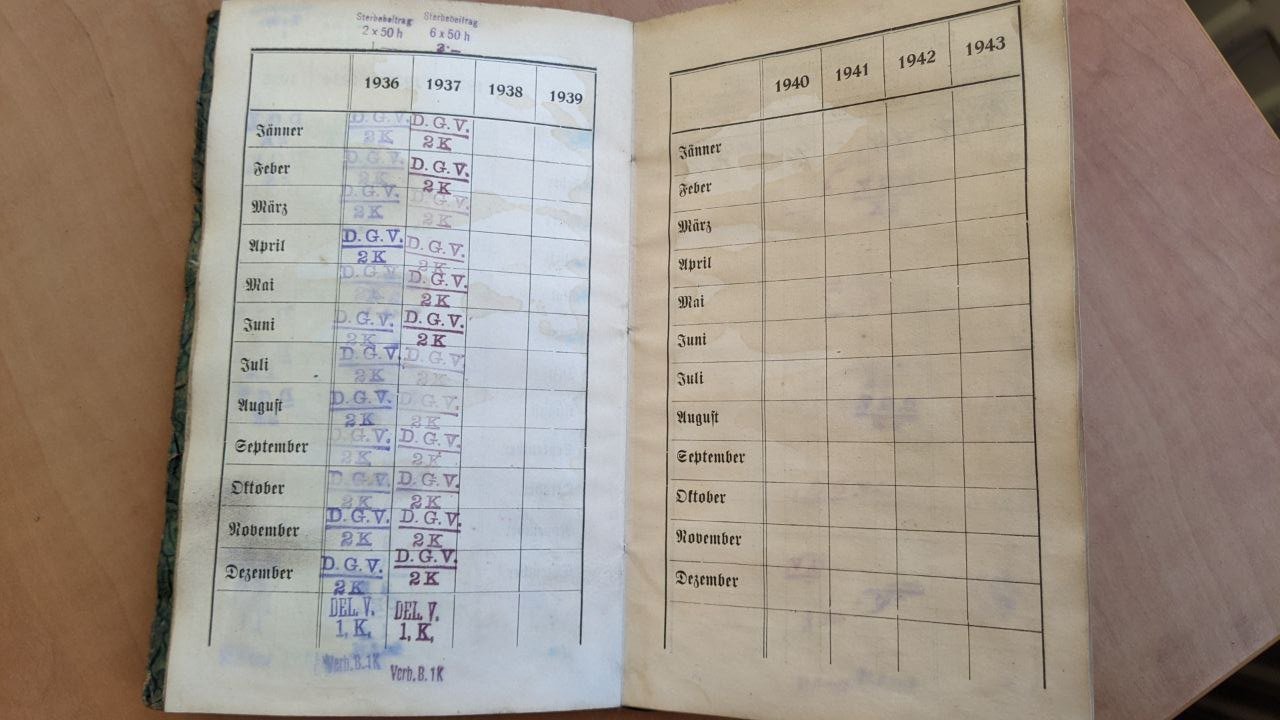 Sterbebeitrag Sterbebeitrag
2 x 50 h 6 x 50 h
3·—
1936 1937 1938 1939
Jänner D. G. V. D. G. V.
2 K 2 K
Feber D. G. V. D. G. V.
2 K 2 K
März D. G. V. D. G. V.
2 K 2 K
April D. G. V. D. G. V.
2 K 2 K
Mai D. G. V. D. G. V.
2 K 2 K
Juni D. G. V. D. G. V.
2 K 2 K
Juli D. G. V. D. G. V.
2 K 2 K
August D. G. V. D. G. V.
2 K 2 K
September D. G. V. D. G. V.
2 K 2 K
Oktober D. G. V. D. G. V.
2 K 2 K
November D. G. V. D. G. V.
2 K 2 K
Dezember D. G. V. D. G. V.
2 K 2 K
DEL. V. DEL. V.
1, K, 1, K,
Verb. B. 1 K Verb. B. 1 K
1940 1941 1942 1943
Jänner
Feber
März
April
Mai
Juni
Juli
August
September
Oktober
November
Dezember